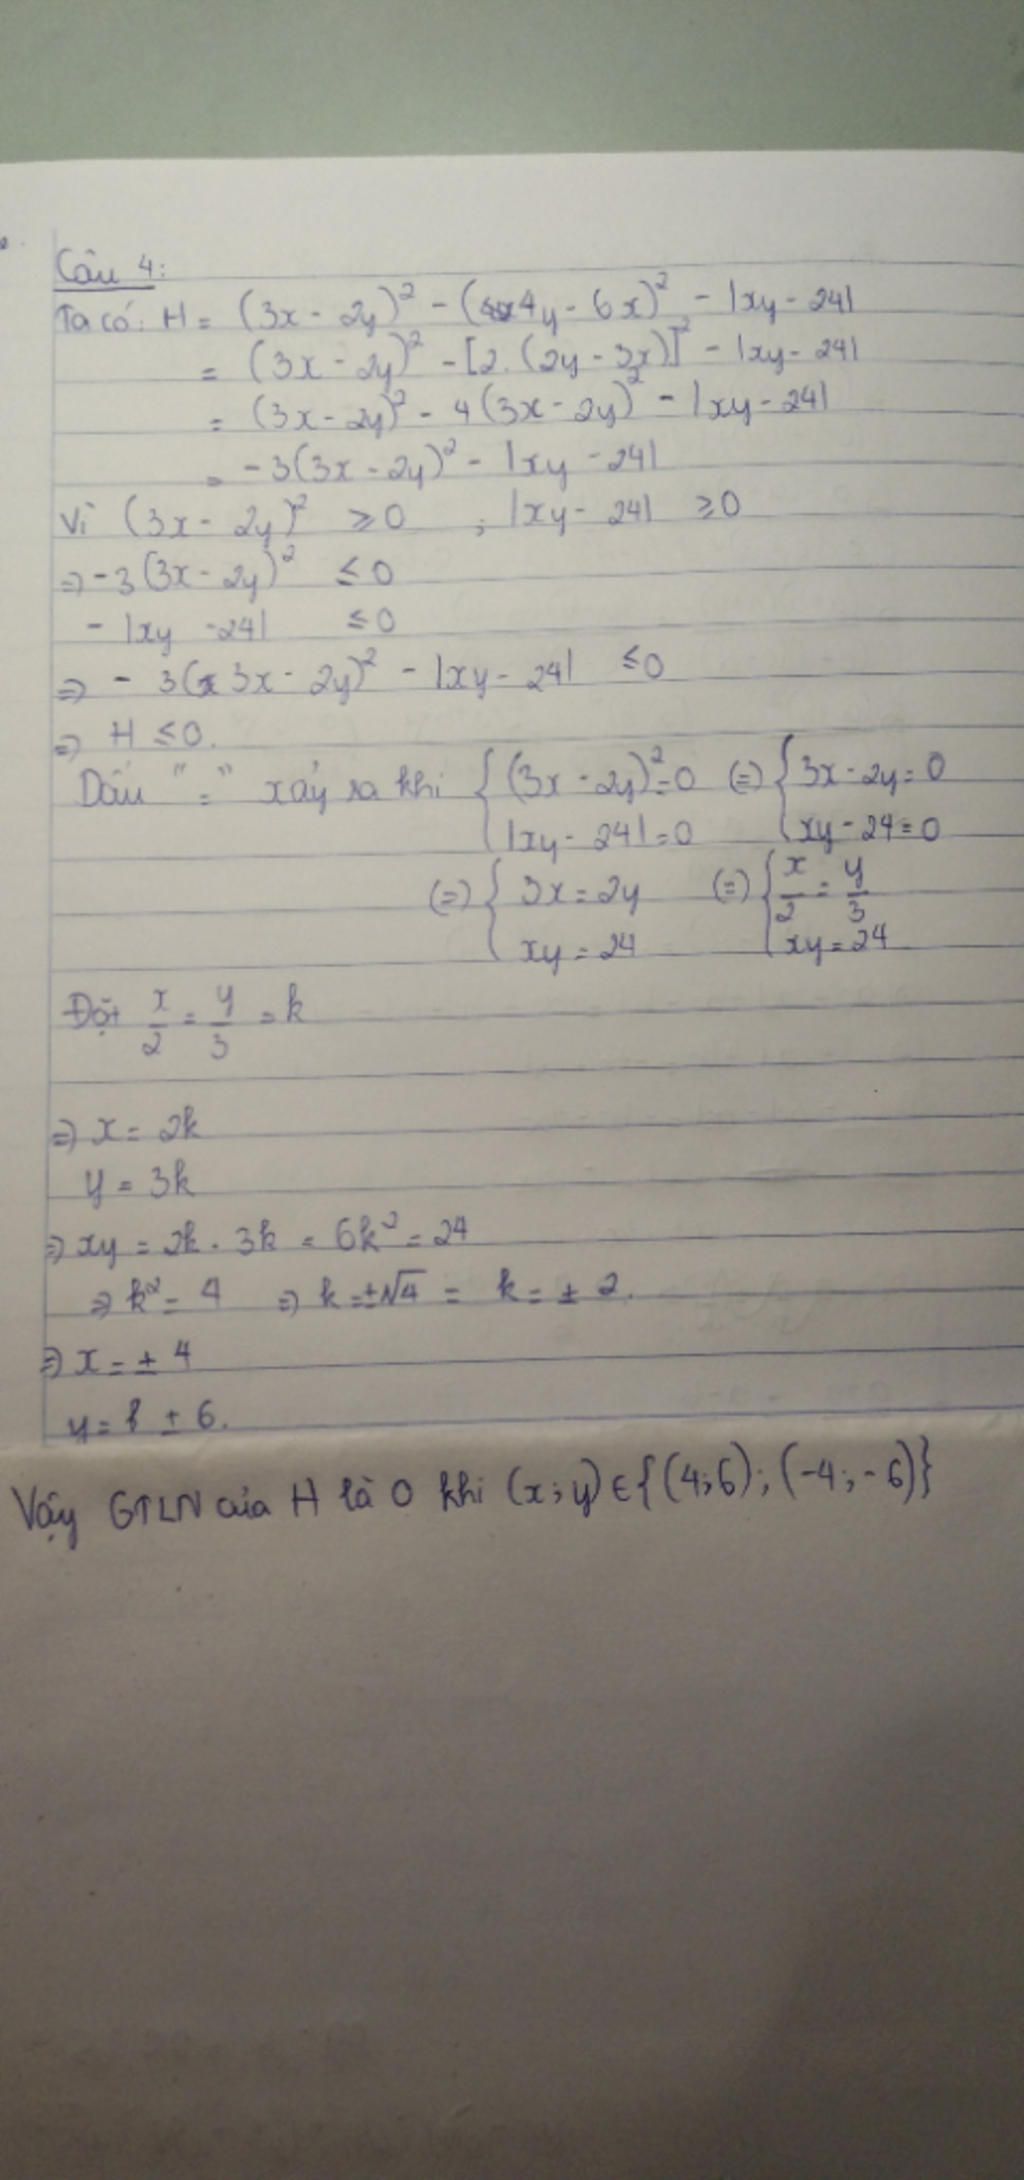 Câu 4:
Ta có: H = (3x - 2y)² - (4y - 6x)² - |xy - 24|
= (3x - 2y)² - [2.(2y - 3x)]² - |xy - 24|
= (3x - 2y)² - 4(3x - 2y)² - |xy - 24|
= -3(3x - 2y)² - |xy - 24|
Vì (3x - 2y)² ≥ 0 ; |xy - 24| ≥ 0
=> -3(3x - 2y)² ≤ 0
- |xy - 24| ≤ 0
=> - 3(3x - 2y)² - |xy - 24| ≤ 0
=> H ≤ 0.
Dấu " = " xảy ra khi { (3x - 2y)² = 0 (=) { 3x - 2y = 0
|xy - 24| = 0 xy - 24 = 0
(=) { 3x = 2y (=) { x/2 = y/3
xy = 24 xy = 24
Đặt x/2 = y/3 = k
=> x = 2k
y = 3k
=> xy = 2k . 3k = 6k² = 24
=> k² = 4 => k = ±√4 = k = ± 2.
=> x = ± 4
y = ± 6.
Vậy GTLN của H là 0 khi (x; y) ∈ {(4; 6); (-4; -6)}